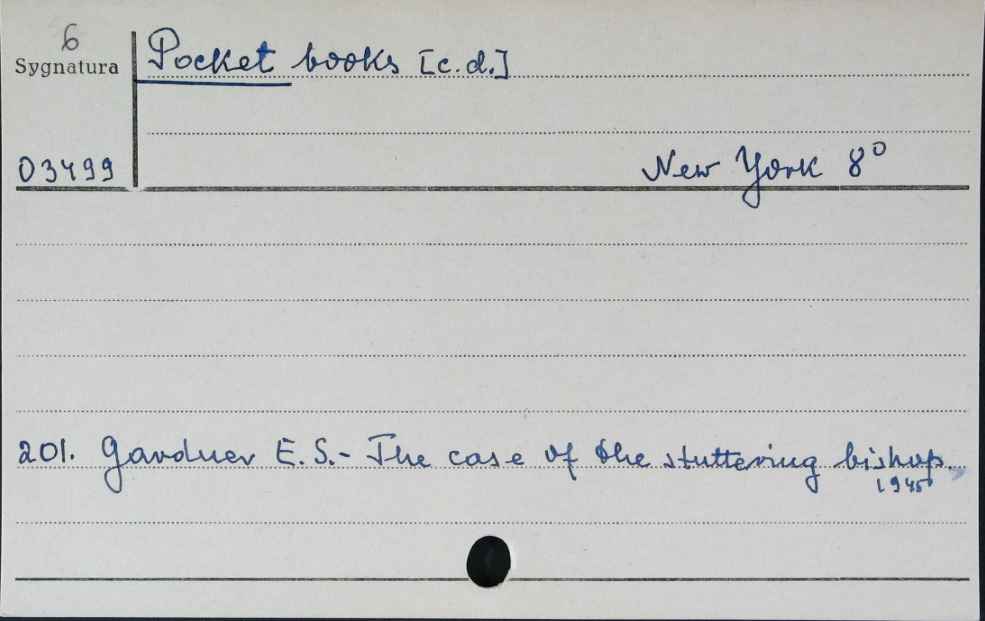 6
Sygnatura
Pocket books [c.d.]
03499
New York 8°
201. Gardner E.S.- The case of the stuttering bishop.
1945